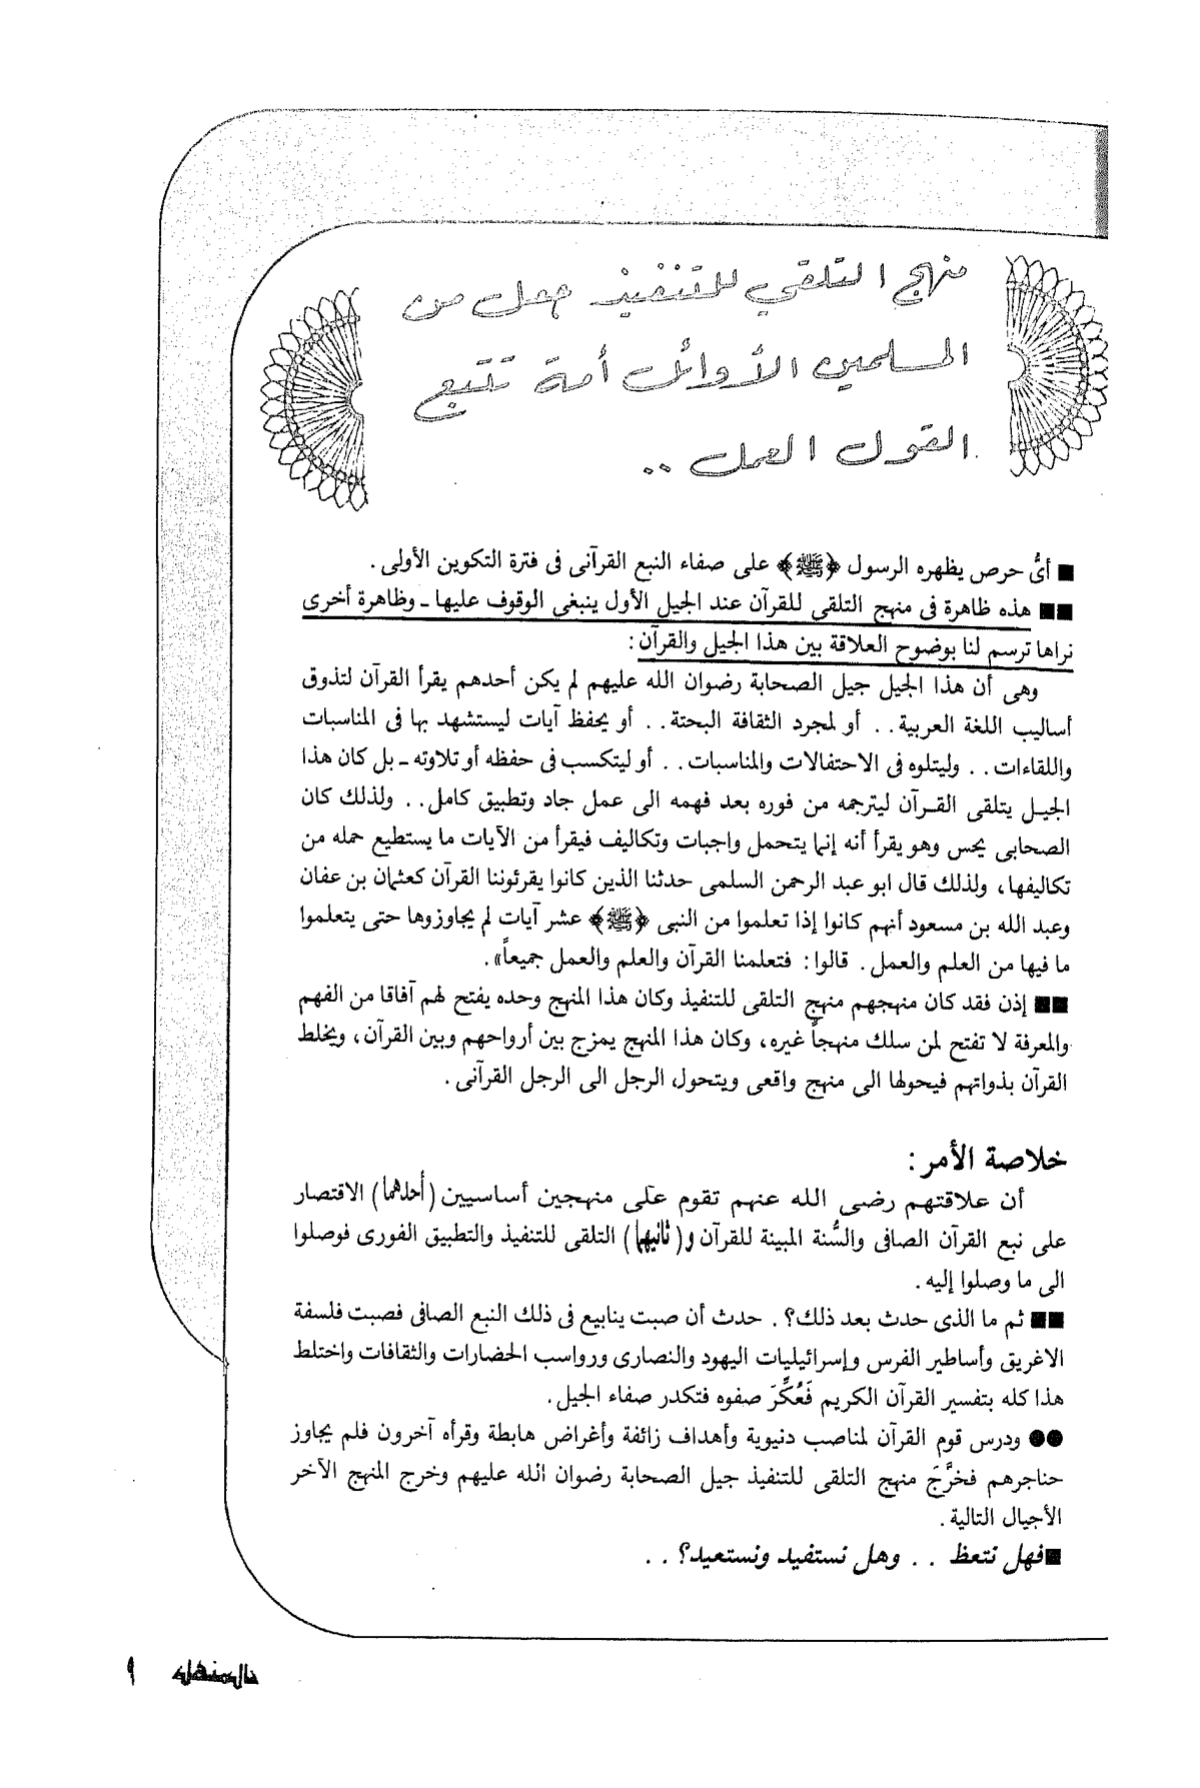 منهج التلقي للتنفيذ جعل من
المسلمين الأوائل أمة تتبع
القول العمل ..
■ أىُّ حرص يظهره الرسول ﴿ﷺ﴾ على صفاء النبع القرآنى فى فترة التكوين الأولى .
■■ هذه ظاهرة فى منهج التلقى للقرآن عند الجيل الأول ينبغى الوقوف عليها ـ وظاهرة أخرى
نراها ترسم لنا بوضوح العلاقة بين هذا الجيل والقرآن :
وهى أن هذا الجيل جيل الصحابة رضوان الله عليهم لم يكن أحدهم يقرأ القرآن لتذوق
أساليب اللغة العربية . . أو لمجرد الثقافة البحتة . . أو يحفظ آيات ليستشهد بها فى المناسبات
واللقاءات . . وليتلوه فى الاحتفالات والمناسبات . . أو ليتكسب فى حفظه أو تلاوته ـ بل كان هذا
الجيل يتلقى القرآن ليترجمه من فوره بعد فهمه الى عمل جاد وتطبيق كامل . . ولذلك كان
الصحابى يحس وهو يقرأ أنه إنما يتحمل واجبات وتكاليف فيقرأ من الآيات ما يستطيع حمله من
تكاليفها، ولذلك قال ابو عبد الرحمن السلمى حدثنا الذين كانوا يقرئوننا القرآن كعثمان بن عفان
وعبد الله بن مسعود أنهم كانوا إذا تعلموا من النبى ﴿ﷺ﴾ عشر آيات لم يجاوزوها حتى يتعلموا
ما فيها من العلم والعمل . قالوا : فتعلمنا القرآن والعلم والعمل جميعاً» .
■■ إذن فقد كان منهجهم منهج التلقى للتنفيذ وكان هذا المنهج وحده يفتح لهم آفاقا من الفهم
والمعرفة لا تفتح لمن سلك منهجاً غيره، وكان هذا المنهج يمزج بين أرواحهم وبين القرآن، ويخلط
القرآن بذواتهم فيحولها الى منهج واقعى ويتحول الرجل الى الرجل القرآنى .
خلاصة الأمر :
أن علاقتهم رضى الله عنهم تقوم على منهجين أساسيين (أحدهما) الاقتصار
على نبع القرآن الصافى والسُّنة المبينة للقرآن و(ثانيهما) التلقى للتنفيذ والتطبيق الفورى فوصلوا
الى ما وصلوا إليه .
■■ ثم ما الذى حدث بعد ذلك؟ . حدث أن صبت ينابيع فى ذلك النبع الصافى فصبت فلسفة
الاغريق وأساطير الفرس وإسرائيليات اليهود والنصارى ورواسب الحضارات والثقافات واختلط
هذا كله بتفسير القرآن الكريم فَعُكِّرَ صفوه فتكدر صفاء الجيل .
●● ودرس قوم القرآن لمناصب دنيوية وأهداف زائفة وأغراض هابطة وقرأه آخرون فلم يجاوز
حناجرهم فخرَّجَ منهج التلقى للتنفيذ جيل الصحابة رضوان الله عليهم وخرج المنهج الآخر
الأجيال التالية .
■فهل نتعظ . . وهل نستفيد ونستعيد؟ . .
٩